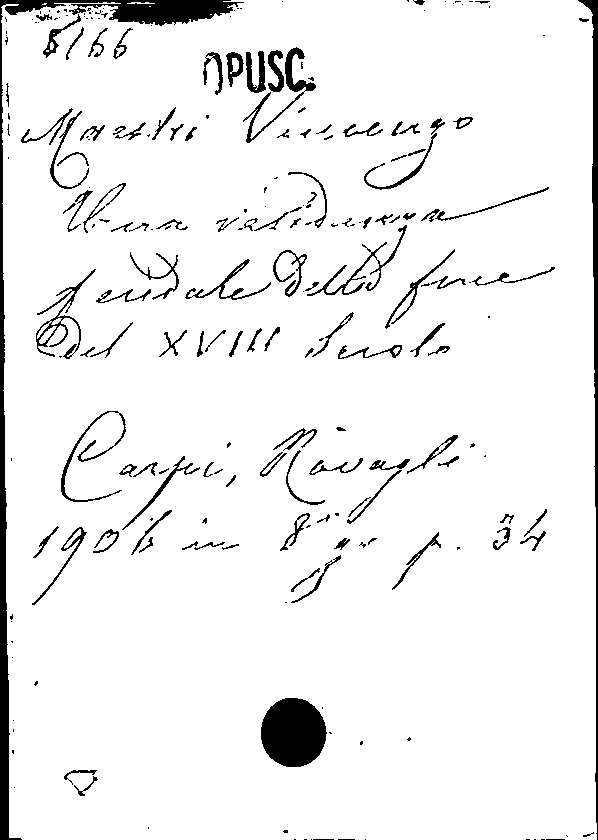 5166
OPUSC.
Maestri Vincenzo
Una residenza
feudale della fine
del XVIII Secolo
Carpi, Rovighi
1906 in 8° gr p. 34